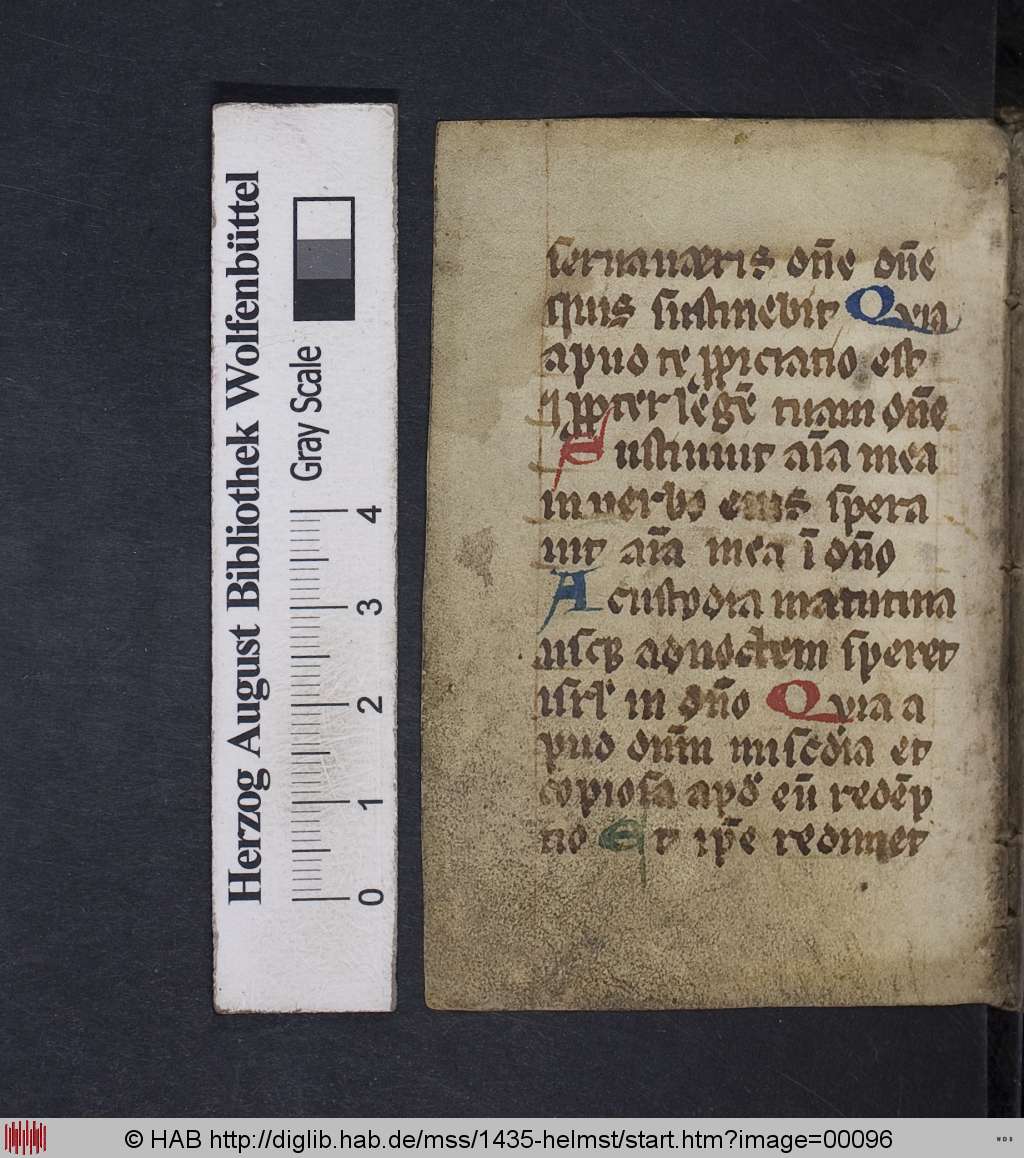 Herzog August Bibliothek Wolfenbüttel
Gray Scale
0 1 2 3 4
seruaueris dn̄e dn̄e
quis sustinebit Quia
apud te ꝓpiciatio est
⁊ ꝓpter legē tuam dn̄e
Sustinuit aīa mea
in uerbo eius spera
uit aīa mea ī dn̄o
A custodia matutina
usqꝫ ad noctem speret
isrl̄ in dn̄o Quia a
pud dnm̄ miscd̄ia et
copiosa apd̄ eū redēp
tio Et ip̄e redimet
© HAB http://diglib.hab.de/mss/1435-helmst/start.htm?image=00096